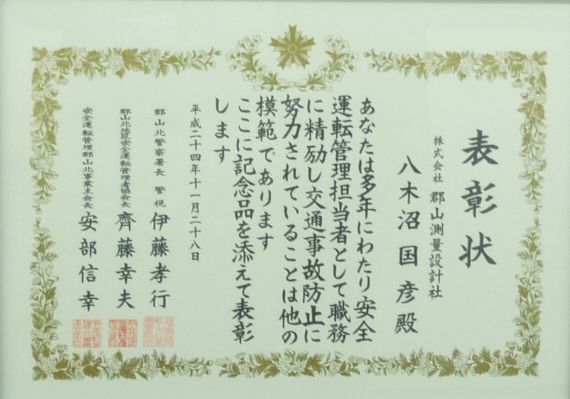 表彰状
株式会社 郡山測量設計社
八木沼国彦殿
あなたは多年にわたり安全
運転管理担当者として職務
に精励し交通事故防止に
努力されていることは他の
模範であります
ここに記念品を添えて表彰
します
平成二十四年十一月二十八日
郡山北警察署長 警視 伊藤孝行
郡山北地区安全運転管理者協会長 齊藤幸夫
安全運転管理郡山北事業主会長 安部信幸